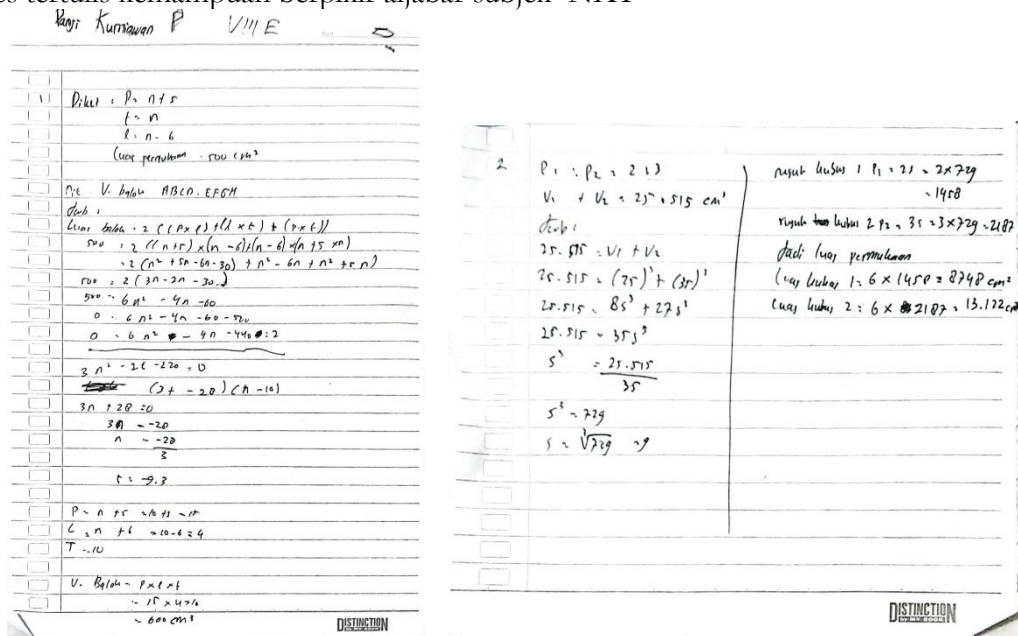 es tertulis kemampuan berpikir aljabar subjek
Panji Kurniawan P VIII E
1 Diket : P = n + 5
t = n
l = n - 6
Luas permukaan = 500 cm²
Dit V. balok ABCD. EFGH
Jwb :
Luas balok = 2 ((P x l) + (l x t) + (P x t))
500 = 2 ((n+5) x (n-6) + (n-6) x (n+5 x n)
= 2 (n² + 5n - 6n - 30) + n² - 6n + n² + 5n)
500 = 2 (3n - 2n - 30)
500 = 6n² - 4n - 60
0 = 6n² - 4n - 60 - 500
0 = 6n² - 4n - 440 : 2
3n² - 2t - 220 = 0
(3t - 28) (n - 10)
3n + 28 = 0
3n = -28
n = -28
3
t = -9,3
P = n + 5 = 10 + 5 = 15
L = n + 6 = 10 - 6 = 4
T = 10
V. Balok = P x l x t
= 15 x 4 x 10
= 600 cm³
DISTINCTION
2 P1 : P2 = 2 : 3
V1 + V2 = 25.515 cm³
Jwb :
25.515 = V1 + V2
25.515 = (2s)³ + (3s)³
25.515 = 8s³ + 27s³
25.515 = 35s³
s³ = 25.515
35
s³ = 729
s = ³√729 = 9
rusuk kubus 1 P1 = 2s = 2 x 729
= 1458
rusuk kubus 2 P2 = 3s = 3 x 729 = 2187
Jadi luas permukaan
Luas kubus 1 = 6 x 1458 = 8748 cm²
Luas kubus 2 = 6 x 2187 = 13.122 cm
DISTINCTION